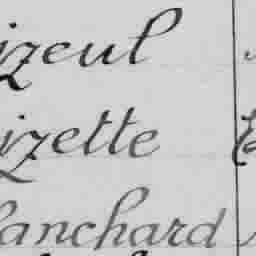 izeul
izette
lanchard